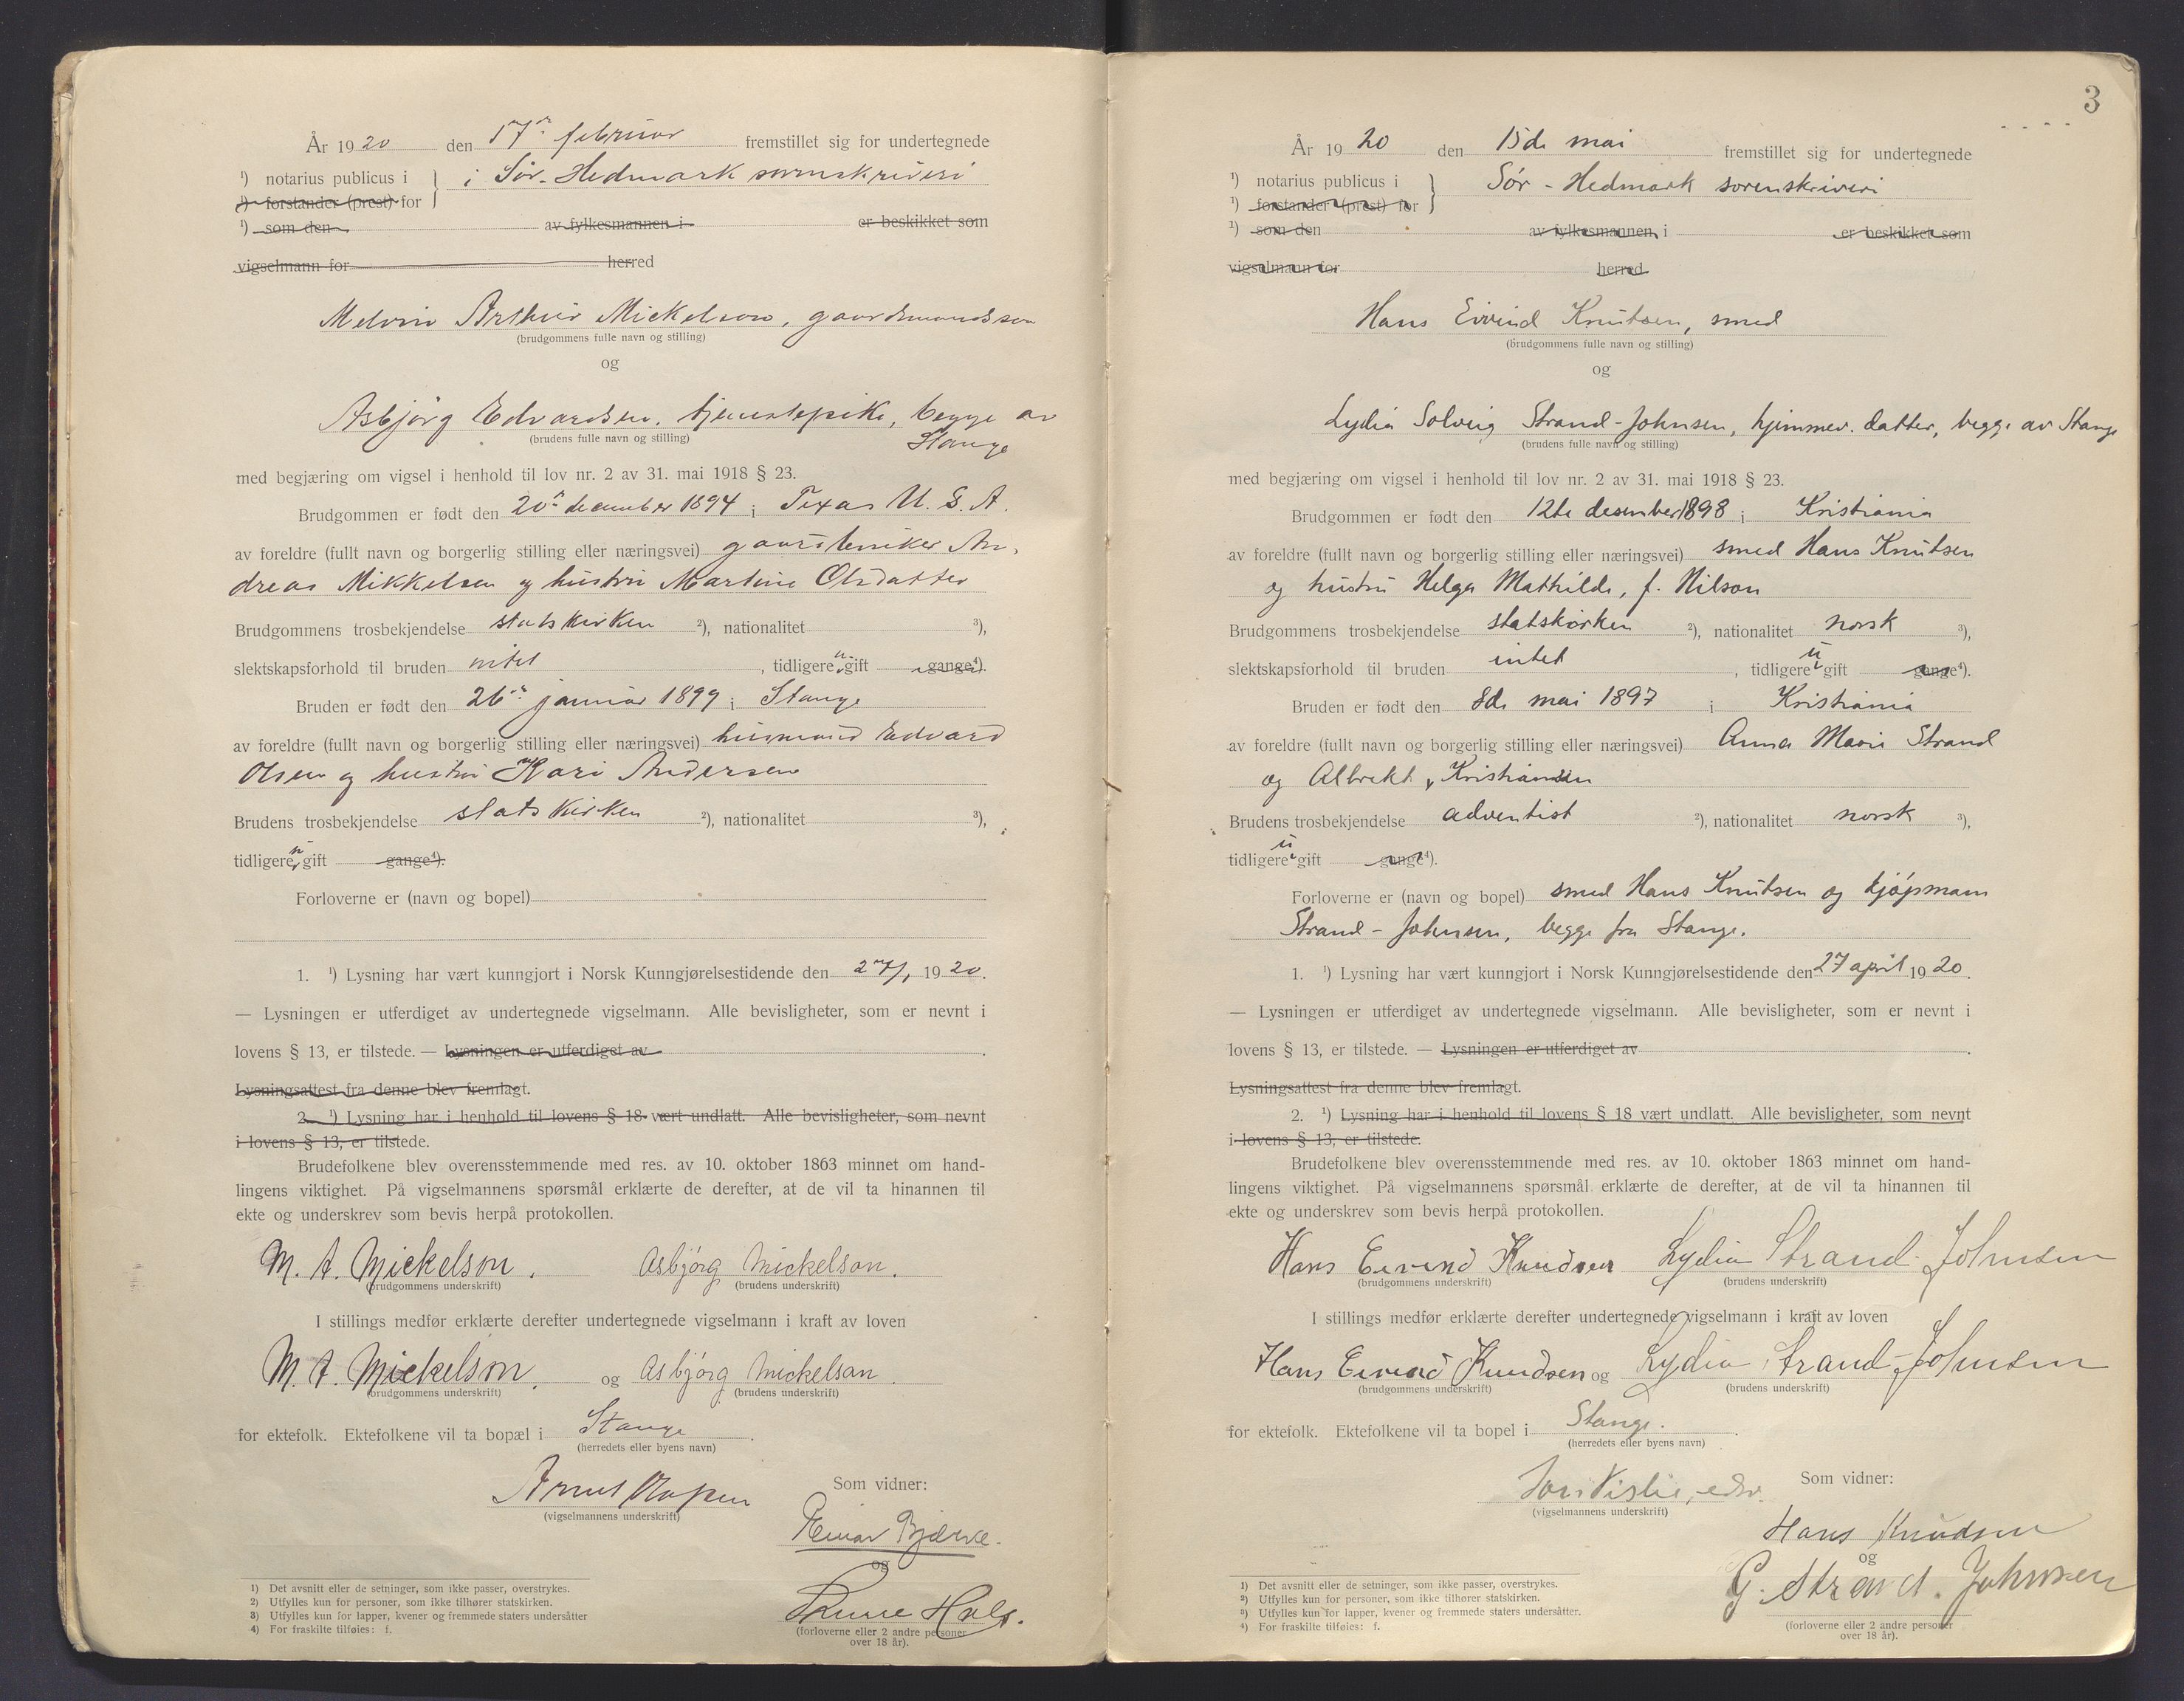 År 1920 den 17de februar fremstillet sig for undertegnede
¹) notarius publicus i } i Sør-Hedmark sorenskriveri
¹) forstander (prest) for
¹) som den av fylkesmannen i er beskikket som
vigselmann for herred
Melvin Arthur Mickelson, gaardmandssøn
(brudgommens fulle navn og stilling)
og
Asbjørg Edvardsen, tjenestepike, begge av
Stange
(brudens fulle navn og stilling)
med begjæring om vigsel i henhold til lov nr. 2 av 31. mai 1918 § 23.
Brudgommen er født den 20de december 1894 i Texas U.S.A.
av foreldre (fullt navn og borgerlig stilling eller næringsvei) gaardbruker An-
dreas Mikkelsen og hustru Martine Olsdatter
Brudgommens trosbekjendelse statskirken ²), nationalitet ³),
slektskapsforhold til bruden intet, tidligere u gift gange⁴).
Bruden er født den 26de januar 1899 i Stange
av foreldre (fullt navn og borgerlig stilling eller næringsvei) husmand Edvard
Olsen og hustru Kari Andersen
Brudens trosbekjendelse statskirken ²), nationalitet ³),
tidligere u gift gange⁴).
Forloverne er (navn og bopel)
1. ¹) Lysning har vært kunngjort i Norsk Kunngjørelsestidende den 27/1 1920.
— Lysningen er utferdiget av undertegnede vigselmann. Alle bevisligheter, som er nevnt i
lovens § 13, er tilstede. — Lysningen er utferdiget av .
Lysningsattest fra denne blev fremlagt.
2. ¹) Lysning har i henhold til lovens § 18 vært undlatt. Alle bevisligheter, som nevnt
i lovens § 13, er tilstede.
Brudefolkene blev overensstemmende med res. av 10. oktober 1863 minnet om hand-
lingens viktighet. På vigselmannens spørsmål erklærte de derefter, at de vil ta hinannen til
ekte og underskrev som bevis herpå protokollen.
M. A. Mickelson. Asbjørg Mickelson.
(brudgommens underskrift) (brudens underskrift)
I stillings medfør erklærte derefter undertegnede vigselmann i kraft av loven
M. A. Mickelson. og Asbjørg Mickelson.
(brudgommens underskrift) (brudens underskrift)
for ektefolk. Ektefolkene vil ta bopæl i Stange.
(herredets eller byens navn)
Som vidner:
(vigselmannens underskrift)
Einar Bjerke.
og
(forloverne eller 2 andre personer
over 18 år).
1) Det avsnitt eller de setninger, som ikke passer, overstrykes.
2) Utfylles kun for personer, som ikke tilhører statskirken.
3) Utfylles kun for lapper, kvener og fremmede staters undersåtter
4) For fraskilte tilføies: f.
3
År 1920 den 15de mai fremstillet sig for undertegnede
¹) notarius publicus i } Sør-Hedmark sorenskriveri
¹) forstander (prest) for
¹) som den av fylkesmannen i er beskikket som
vigselmann for herred
Hans Eivind Knutsen, smed
(brudgommens fulle navn og stilling)
og
Lydia Solveig Strand-Johnsen, hjemmev. datter, begge av Stange
(brudens fulle navn og stilling)
med begjæring om vigsel i henhold til lov nr. 2 av 31. mai 1918 § 23.
Brudgommen er født den 12te desember 1898 i Kristiania
av foreldre (fullt navn og borgerlig stilling eller næringsvei) smed Hans Knutsen
og hustru Helga Mathilde, f. Nilson
Brudgommens trosbekjendelse statskirken ²), nationalitet norsk ³),
slektskapsforhold til bruden intet, tidligere u gift gange⁴).
Bruden er født den 8de mai 1897 i Kristiania
av foreldre (fullt navn og borgerlig stilling eller næringsvei) Anna Marie Strand
og Albrekt Kristiansen
Brudens trosbekjendelse adventist ²), nationalitet norsk ³),
tidligere u gift gange⁴).
Forloverne er (navn og bopel) smed Hans Knutsen og kjøpmann
Strand-Johnsen, begge fra Stange.
1. ¹) Lysning har vært kunngjort i Norsk Kunngjørelsestidende den 27 april 1920.
— Lysningen er utferdiget av undertegnede vigselmann. Alle bevisligheter, som er nevnt i
lovens § 13, er tilstede. — Lysningen er utferdiget av .
Lysningsattest fra denne blev fremlagt.
2. ¹) Lysning har i henhold til lovens § 18 vært undlatt. Alle bevisligheter, som nevnt
i lovens § 13, er tilstede.
Brudefolkene blev overensstemmende med res. av 10. oktober 1863 minnet om hand-
lingens viktighet. På vigselmannens spørsmål erklærte de derefter, at de vil ta hinannen til
ekte og underskrev som bevis herpå protokollen.
Hans Eivind Knudsen Lydia Strand-Johnsen
(brudgommens underskrift) (brudens underskrift)
I stillings medfør erklærte derefter undertegnede vigselmann i kraft av loven
Hans Eivind Knudsen og Lydia Strand-Johnsen
(brudgommens underskrift) (brudens underskrift)
for ektefolk. Ektefolkene vil ta bopel i Stange.
(herredets eller byens navn)
Som vidner:
(vigselmannens underskrift)
Hans Knudsen
og
G. Strand-Johnsen
(forloverne eller 2 andre personer
over 18 år).
1) Det avsnitt eller de setninger, som ikke passer, overstrykes.
2) Utfylles kun for personer, som ikke tilhører statskirken.
3) Utfylles kun for lapper, kvener og fremmede staters undersåtter.
4) For fraskilte tilføies: f.